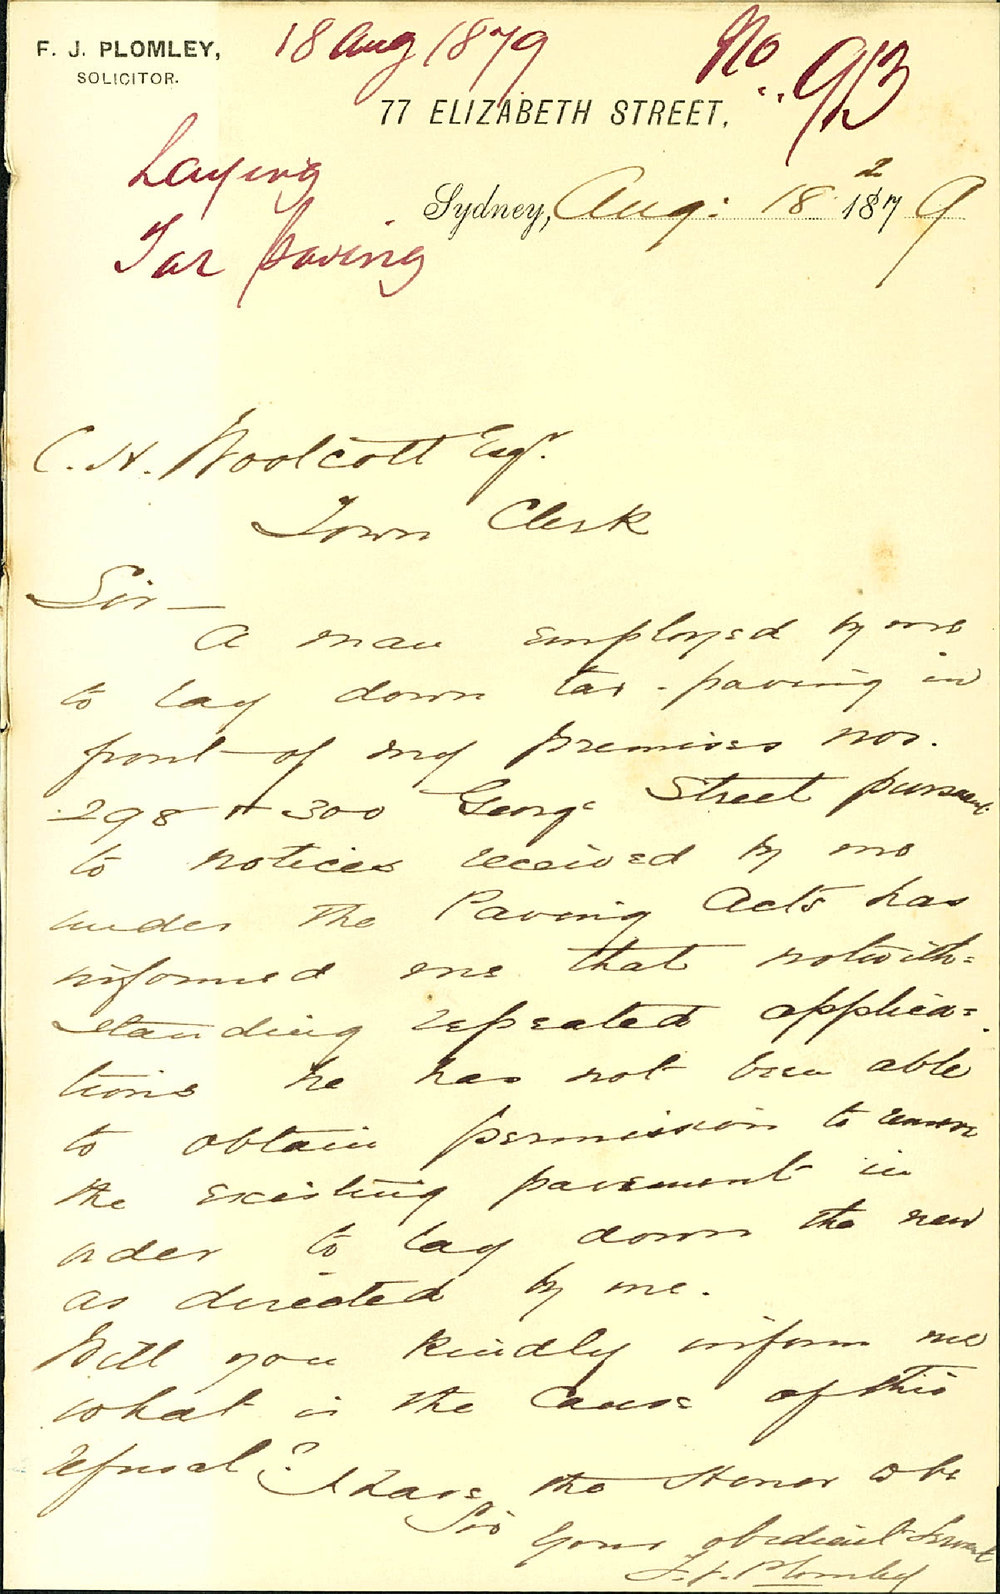 F. J. PLOMLEY,
SOLICITOR.
18 Aug 1879
No 913
77 ELIZABETH STREET,
Laying
Tar paving
Sydney, Aug: 18 1879
2
C. H. Woolcott Esqr.
Town Clerk
Sir —
A man employed by me
to lay down tar-paving in
front of my premises nos.
298 & 300 George Street pursuant
to notices received by me
under the Paving Acts has
informed me that notwith=
standing repeated applica=
tions he has not been able
to obtain permission to remove
the existing pavement in
order to lay down the new
as directed by me.
Will you kindly inform me
what is the Cause of this
refusal? I have the Honor to be
Sir
Your obedient Servant
F. J. Plomley